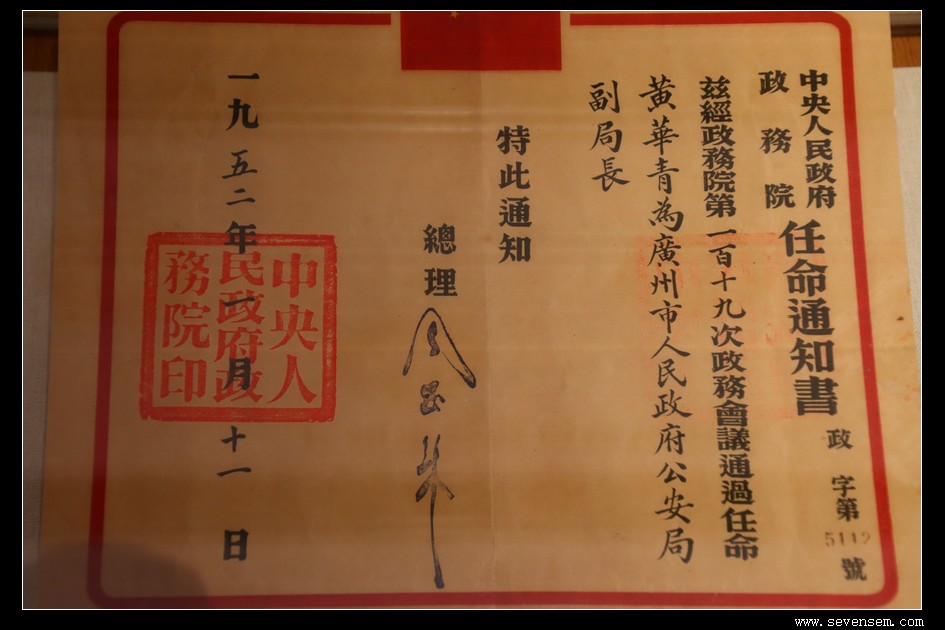 中央人民政府
政務院
任命通知書
政字第5112號
茲經政務院第一百十九次政務會議通過任命
黃華青為廣州市人民政府公安局
副局長
特此通知
總理
周恩來
一九五二年一月十一日
中央人
民政府政
務院印
www.sevensem.com